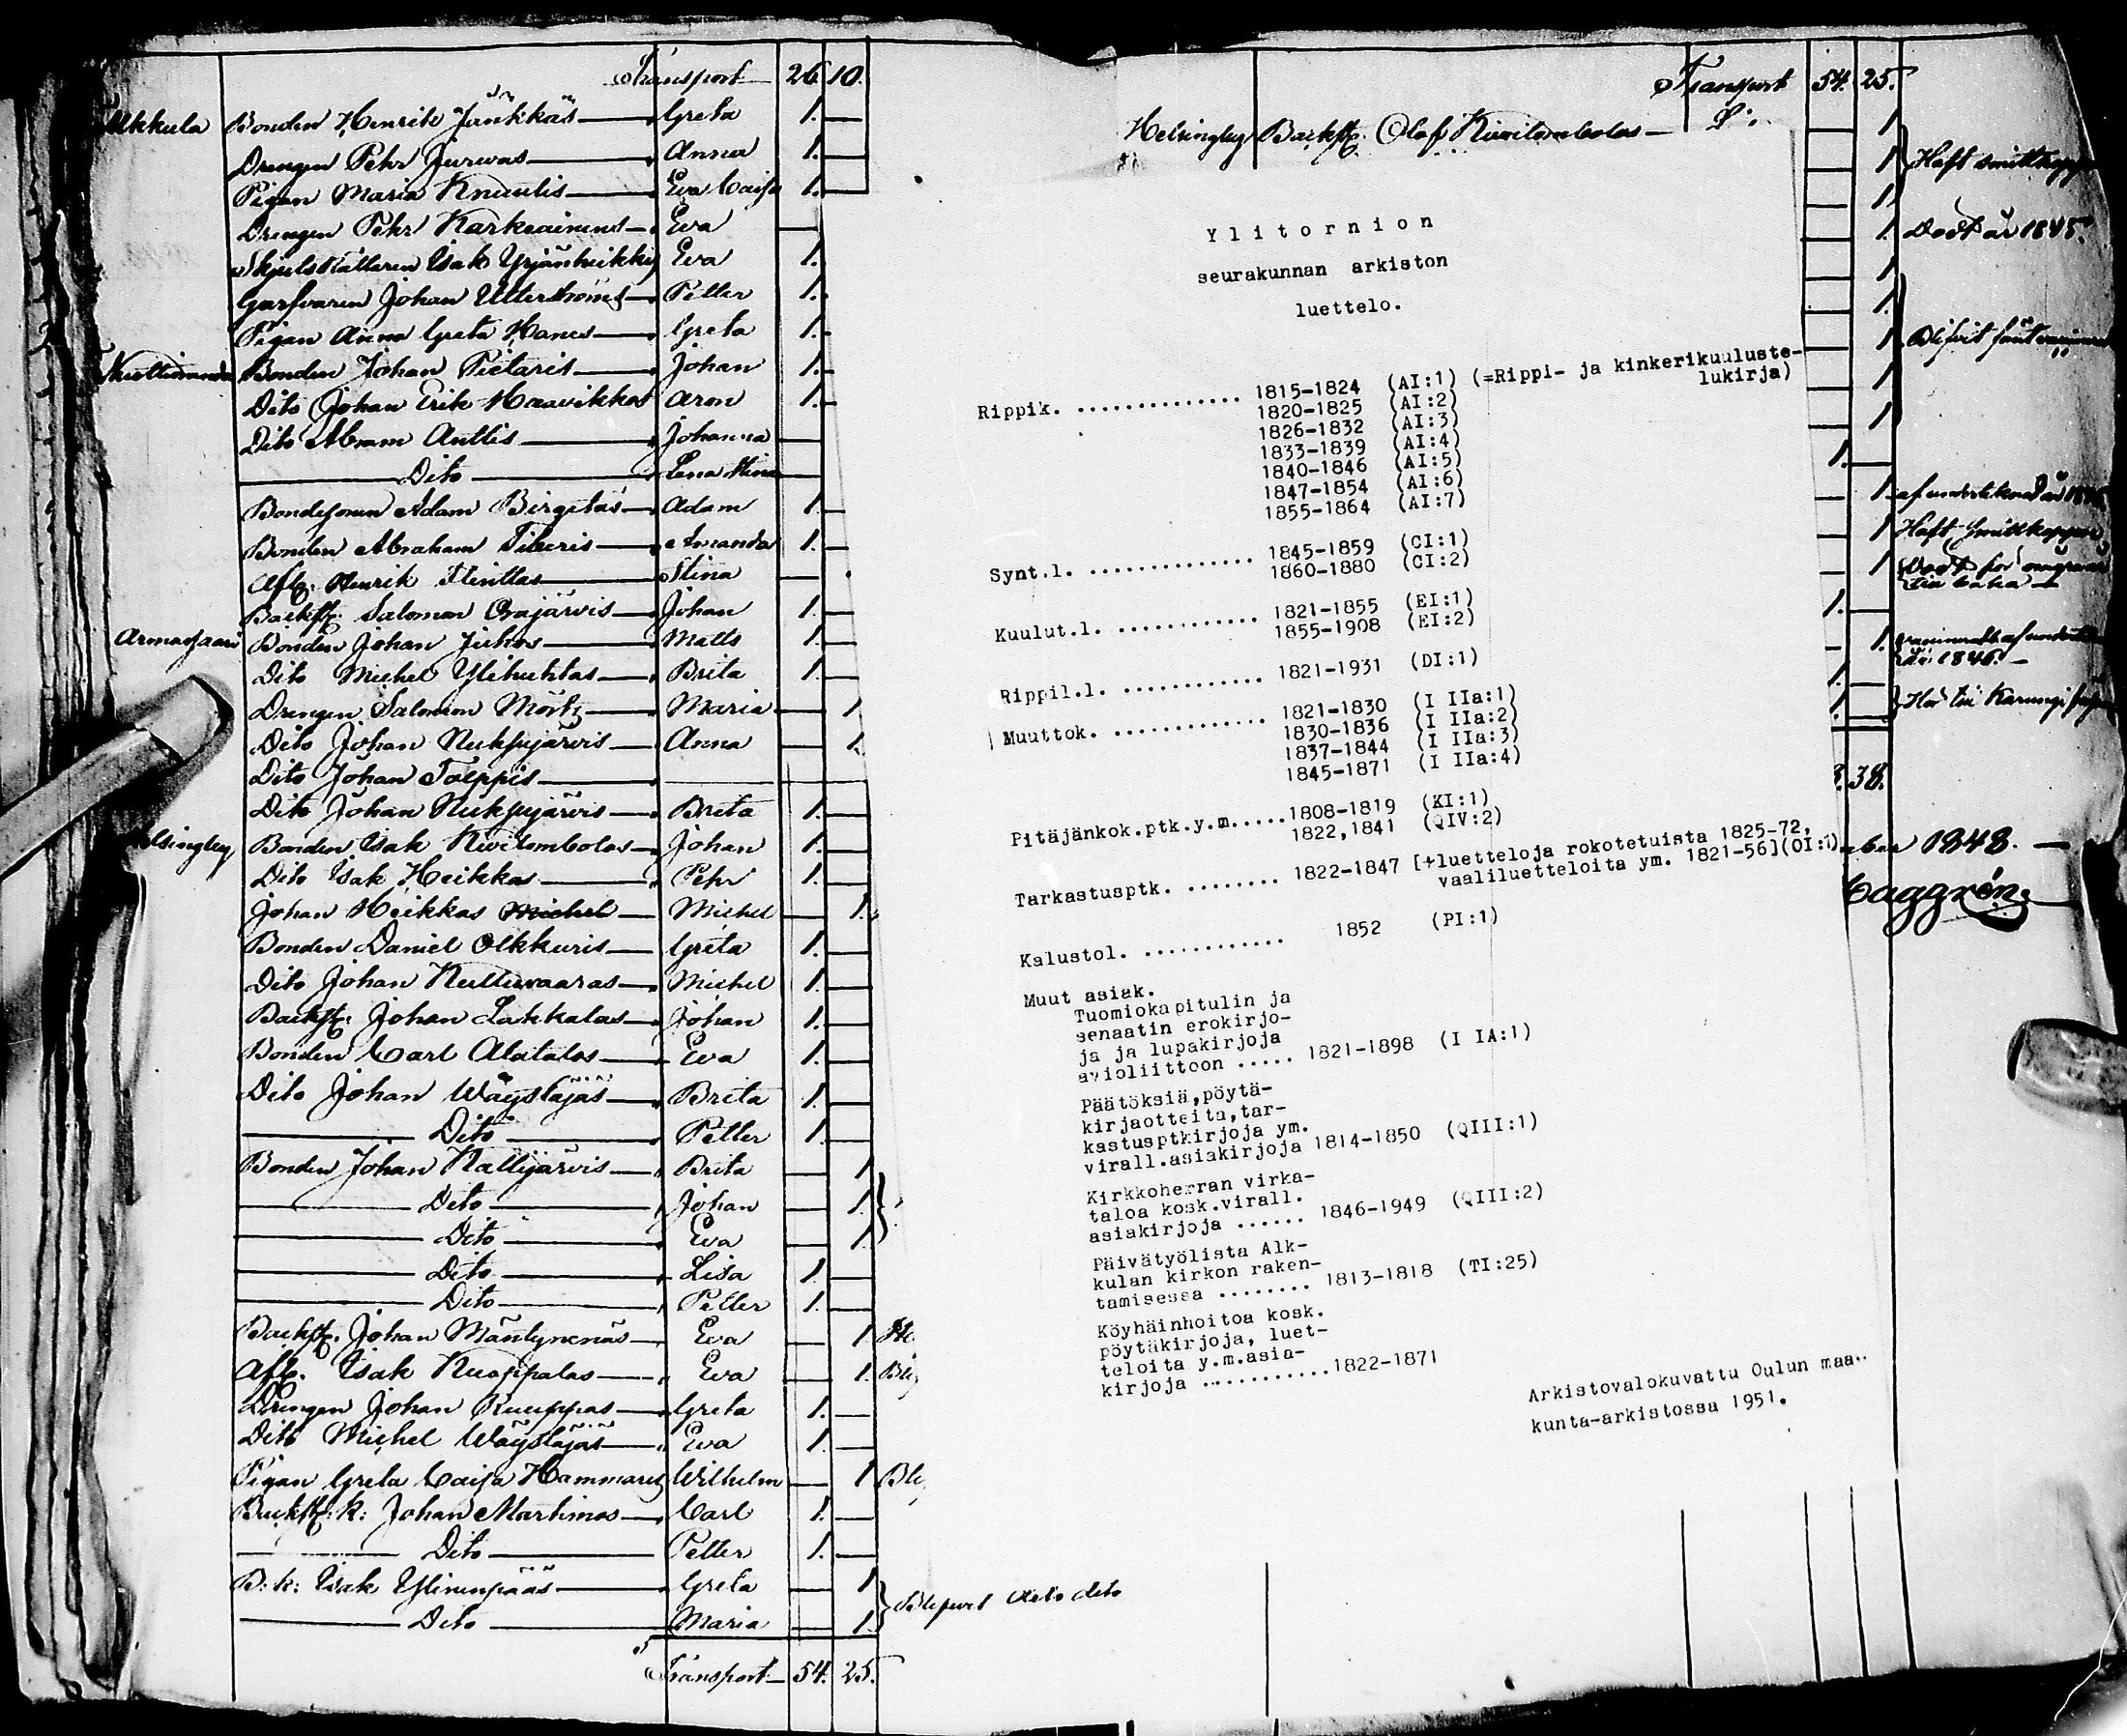 Transport 26 10.
Alkkula Bonden Henrik Junkkas Greta 1.
Drengen Pehr Jurwas Anna 1.
Pigan Maria Knuutis Eva Caisa 1.
Drengen Pehr Karkeainens Eva
Skjutsrättaren Isak Yrjänheikky Eva 1.
Garfvaren Johan Utterströms Petter 1.
Pigan Anna Greta Hanes Greta 1.
Bonden Johan Pietaris Johan 1.
Dito Johan Erik Haavikkos Aron 1.
Dito Abram Anttis Johanna
Dito Lena Stina
Bondesonen Adam Birgitas Adam 1.
Bonden Abraham Tiberis Amanda 1.
Afl. Henrik Flinttas Stina
Backst. Salomon Orajärvis Johan 1.
Armasjaari Bonden Johan Juhos Matts 1.
Dito Michel Ylihuhtas Brita 1.
Drengen Salomon Mörtz Maria 1
Dito Johan Kukujärvis Anna 1.
Dito Johan Tolppis
Dito Johan Kukujärvis Brita 1.
Helsingby Bonden Isak Kivilombolos Johan 1.
Dito Isak Heikkas Pehr 1.
Johan Heikkas Michel Michel 1.
Bonden Daniel Olkkuris Greta 1.
Dito Johan Kultuvaaras Michel 1.
Backst. Johan Lakkalas Johan 1.
Bonden Carl Alatalos Eva 1.
Dito Johan Wäystäjäs Brita 1.
Dito Petter 1.
Bonden Johan Kallijärvis Brita 1
Dito Johan 1.
Dito Eva 1.
Dito Lisa 1.
Dito Petter 1.
Backst. Johan Mäntynenäs Eva 1
Afl. Isak Kuoppalas Eva 1.
Drengen Johan Kuuppas Greta 1.
Dito Michel Wäystäjäs Eva 1.
Pigan Greta Caisa Hammares Wilhelm 1
Backst. k: Johan Martimos Carl 1.
Dito Petter 1.
B: k: Isak Ylinenpääs Greta 1
Dito Maria 1.
dito
Transport 54. 25.
Transport 54. 25.
Helsingby Backst. Olof Kivilombolos 1
Haft smittkoppor
Död år 1845.
Ylitornion
seurakunnan arkiston
luettelo.
Rippik. .............. 1815-1824 (AI:1) (=Rippi- ja kinkerikuuluste-
lukirja)
1820-1825 (AI:2)
1826-1832 (AI:3)
1833-1839 (AI:4)
1840-1846 (AI:5)
1847-1854 (AI:6)
1855-1864 (AI:7)
Synt.l. .............. 1845-1859 (CI:1)
1860-1880 (CI:2)
Kuulut.l. ............ 1821-1855 (EI:1)
1855-1908 (EI:2)
Rippil.l. ............ 1821-1931 (DI:1)
Muuttok. ............. 1821-1830 (I IIa:1)
1830-1836 (I IIa:2)
1837-1844 (I IIa:3)
1845-1871 (I IIa:4)
Pitäjänkok.ptk.y.m.....1808-1819 (KI:1)
1822,1841 (QIV:2)
Tarkastusptk. ........ 1822-1847 [+luetteloja rokotetuista 1825-72,
vaaliluetteloita ym. 1821-56](OI:1)
Kalustol. ............ 1852 (PI:1)
Muut asiak.
Tuomiokapitulin ja
senaatin erokirjo-
ja ja lupakirjoja
avioliittoon ..... 1821-1898 (I IA:1)
Päätöksiä,pöytä-
kirjaotteita,tar-
kastusptkirjoja ym.
virall.asiakirjoja 1814-1850 (QIII:1)
Kirkkoherran virka-
taloa kosk.virall.
asiakirjoja ...... 1846-1949 (QIII:2)
Päivätyölista Alk-
kulan kirkon raken-
tamisessa ........ 1813-1818 (TI:25)
Köyhäinhoitoa kosk.
pöytäkirjoja, luet-
teloita y.m.asia-
kirjoja ...........1822-1871
Arkistovalokuvattu Oulun maa-
kunta-arkistossa 1951.
Haft smittkoppor
år 1846.
till Karungi
38.
1848.
Caggrén